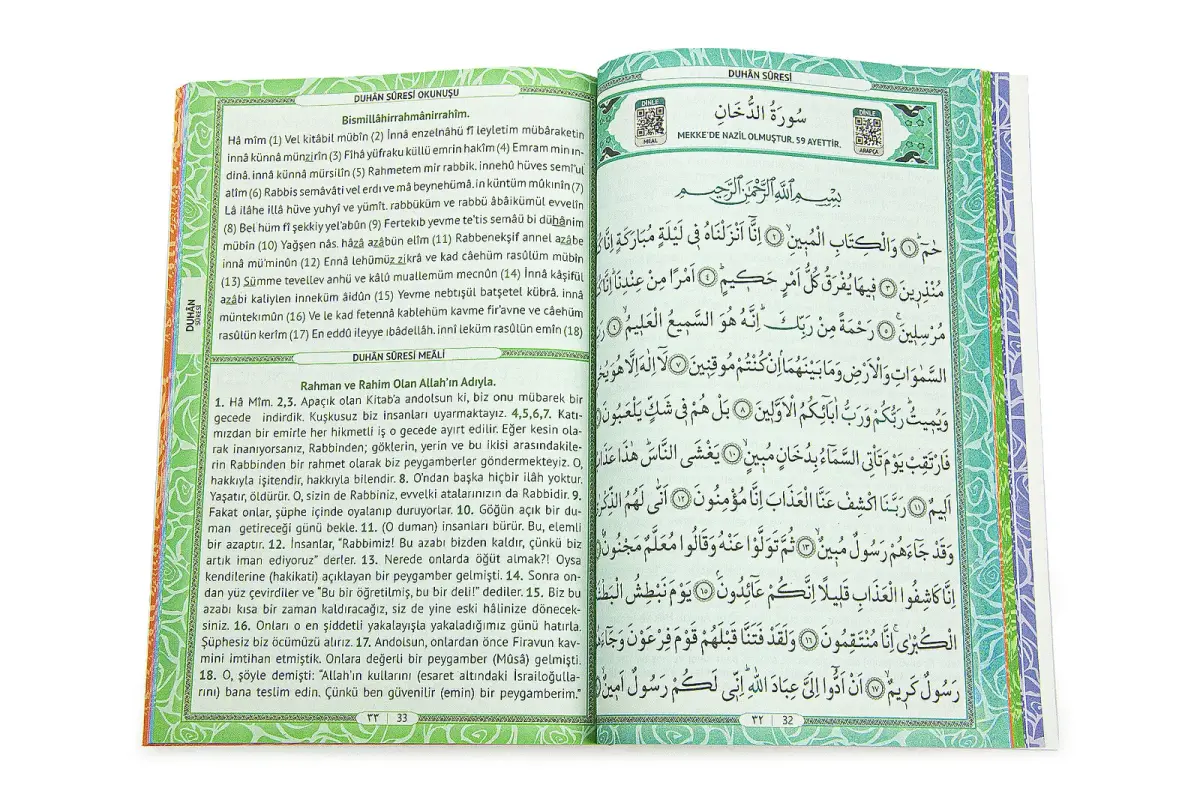 DUHÂN SÛRESİ
DİNLE
DİNLE
سُورَةُ الدُّخَانِ
MEKKE'DE NAZİL OLMUŞTUR. 59 AYETTİR.
MEAL
ARAPÇA
بِسْمِ اللّٰهِ الرَّحْمٰنِ الرَّحِيمِ
حٰمٓ ﴿١﴾ وَالْكِتَابِ الْمُبٖينِ ﴿٢﴾ اِنَّٓا اَنْزَلْنَاهُ فٖي لَيْلَةٍ مُبَارَكَةٍ اِنَّا
مُنْذِرٖينَ ﴿٣﴾ فٖيهَا يُفْرَقُ كُلُّ اَمْرٍ حَكٖيمٍ ﴿٤﴾ اَمْرًا مِنْ عِنْدِنَا اِنَّا
مُرْسِلٖينَ ﴿٥﴾ رَحْمَةً مِنْ رَبِّكَ اِنَّهُ هُوَ السَّمٖيعُ الْعَلٖيمُ ﴿٦﴾
السَّمٰوَاتِ وَالْاَرْضِ وَمَا بَيْنَهُمَا اِنْ كُنْتُمْ مُوقِنٖينَ ﴿٧﴾ لَٓا اِلٰهَ اِلَّا هُوَ
وَيُمٖيتُ رَبُّكُمْ وَرَبُّ اٰبَٓائِكُمُ الْاَوَّلٖينَ ﴿٨﴾ بَلْ هُمْ فٖي شَكٍّ يَلْعَبُونَ
فَارْتَقِبْ يَوْمَ تَأْتِي السَّمَٓاءُ بِدُخَانٍ مُبٖينٍ ﴿١٠﴾ يَغْشَى النَّاسَ هٰذَا
اَلٖيمٌ ﴿١١﴾ رَبَّنَا اكْشِفْ عَنَّا الْعَذَابَ اِنَّا مُؤْمِنُونَ ﴿١٢﴾ اَنّٰى لَهُمُ الذِّكْرٰى
وَقَدْ جَٓاءَهُمْ رَسُولٌ مُبٖينٌ ﴿١٣﴾ ثُمَّ تَوَلَّوْا عَنْهُ وَقَالُوا مُعَلَّمٌ مَجْنُونٌ
اِنَّا كَاشِفُوا الْعَذَابِ قَلٖيلًا اِنَّكُمْ عَٓائِدُونَ ﴿١٥﴾ يَوْمَ نَبْطِشُ
الْكُبْرٰى اِنَّا مُنْتَقِمُونَ ﴿١٦﴾ وَلَقَدْ فَتَنَّا قَبْلَهُمْ قَوْمَ فِرْعَوْنَ
رَسُولٌ كَرٖيمٌ ﴿١٧﴾ اَنْ اَدُّٓوا اِلَيَّ عِبَادَ اللّٰهِ اِنّٖي لَكُمْ رَسُولٌ اَمٖينٌ
٣٢ | 32
DUHÂN SÛRESİ OKUNUŞU
Bismillâhirrahmânirrahîm.
Hâ mîm (1) Vel kitâbil mübîn (2) İnnâ enzelnâhü fî leyletim mübâraketin
innâ künnâ münzirîn (3) Fîhâ yüfraku küllü emrin hakîm (4) Emram min ın-
dinâ. innâ künnâ mürsilîn (5) Rahmetem mir rabbik. innehû hüves semî'ul
alîm (6) Rabbis semâvâti vel erdı ve mâ beynehümâ. in küntüm mûkınîn (7)
Lâ ilâhe illâ hüve yuhyî ve yümît. rabbüküm ve rabbü âbâikümül evvelîn
(8) Bel hüm fî şekkiy yel'abûn (9) Fertekıb yevme te'tis semâü bi dühânim
mübîn (10) Yağşen nâs. hâzâ azâbün elîm (11) Rabbenekşif annel azâbe
innâ mü'minûn (12) Ennâ lehümüz zikrâ ve kad câehüm rasûlüm mübîn
(13) Sümme tevellev anhü ve kâlû muallemüm mecnûn (14) İnnâ kâşifül
azâbi kaliylen inneküm âidûn (15) Yevme nebtışül batşetel kübrâ. innâ
müntekımûn (16) Ve le kad fetennâ kablehüm kavme fir'avne ve câehüm
rasûlün kerîm (17) En eddû ileyye ıbâdellâh. innî leküm rasûlün emîn (18)
DUHÂN
SÛRESİ
DUHÂN SÛRESİ MEÂLİ
Rahman ve Rahim Olan Allah'ın Adıyla.
1. Hâ Mîm. 2,3. Apaçık olan Kitab'a andolsun ki, biz onu mübarek bir
gecede indirdik. Kuşkusuz biz insanları uyarmaktayız. 4,5,6,7. Katı-
mızdan bir emirle her hikmetli iş o gecede ayırt edilir. Eğer kesin ola-
rak inanıyorsanız, Rabbinden; göklerin, yerin ve bu ikisi arasındakile-
rin Rabbinden bir rahmet olarak biz peygamberler göndermekteyiz. O,
hakkıyla işitendir, hakkıyla bilendir. 8. O'ndan başka hiçbir ilâh yoktur.
Yaşatır, öldürür. O, sizin de Rabbiniz, evvelki atalarınızın da Rabbidir. 9.
Fakat onlar, şüphe içinde oyalanıp duruyorlar. 10. Göğün açık bir du-
man getireceği günü bekle. 11. (O duman) insanları bürür. Bu, elemli
bir azaptır. 12. İnsanlar, "Rabbimiz! Bu azabı bizden kaldır, çünkü biz
artık iman ediyoruz" derler. 13. Nerede onlarda öğüt almak?! Oysa
kendilerine (hakikati) açıklayan bir peygamber gelmişti. 14. Sonra on-
dan yüz çevirdiler ve "Bu bir öğretilmiş, bu bir deli!" dediler. 15. Biz bu
azabı kısa bir zaman kaldıracağız, siz de yine eski hâlinize dönecek-
siniz. 16. Onları o en şiddetli yakalayışla yakaladığımız günü hatırla.
Şüphesiz biz öcümüzü alırız. 17. Andolsun, onlardan önce Firavun kav-
mini imtihan etmiştik. Onlara değerli bir peygamber (Mûsâ) gelmişti.
18. O, şöyle demişti: "Allah'ın kullarını (esaret altındaki İsrailoğulla-
rını) bana teslim edin. Çünkü ben güvenilir (emin) bir peygamberim."
٣٣ | 33